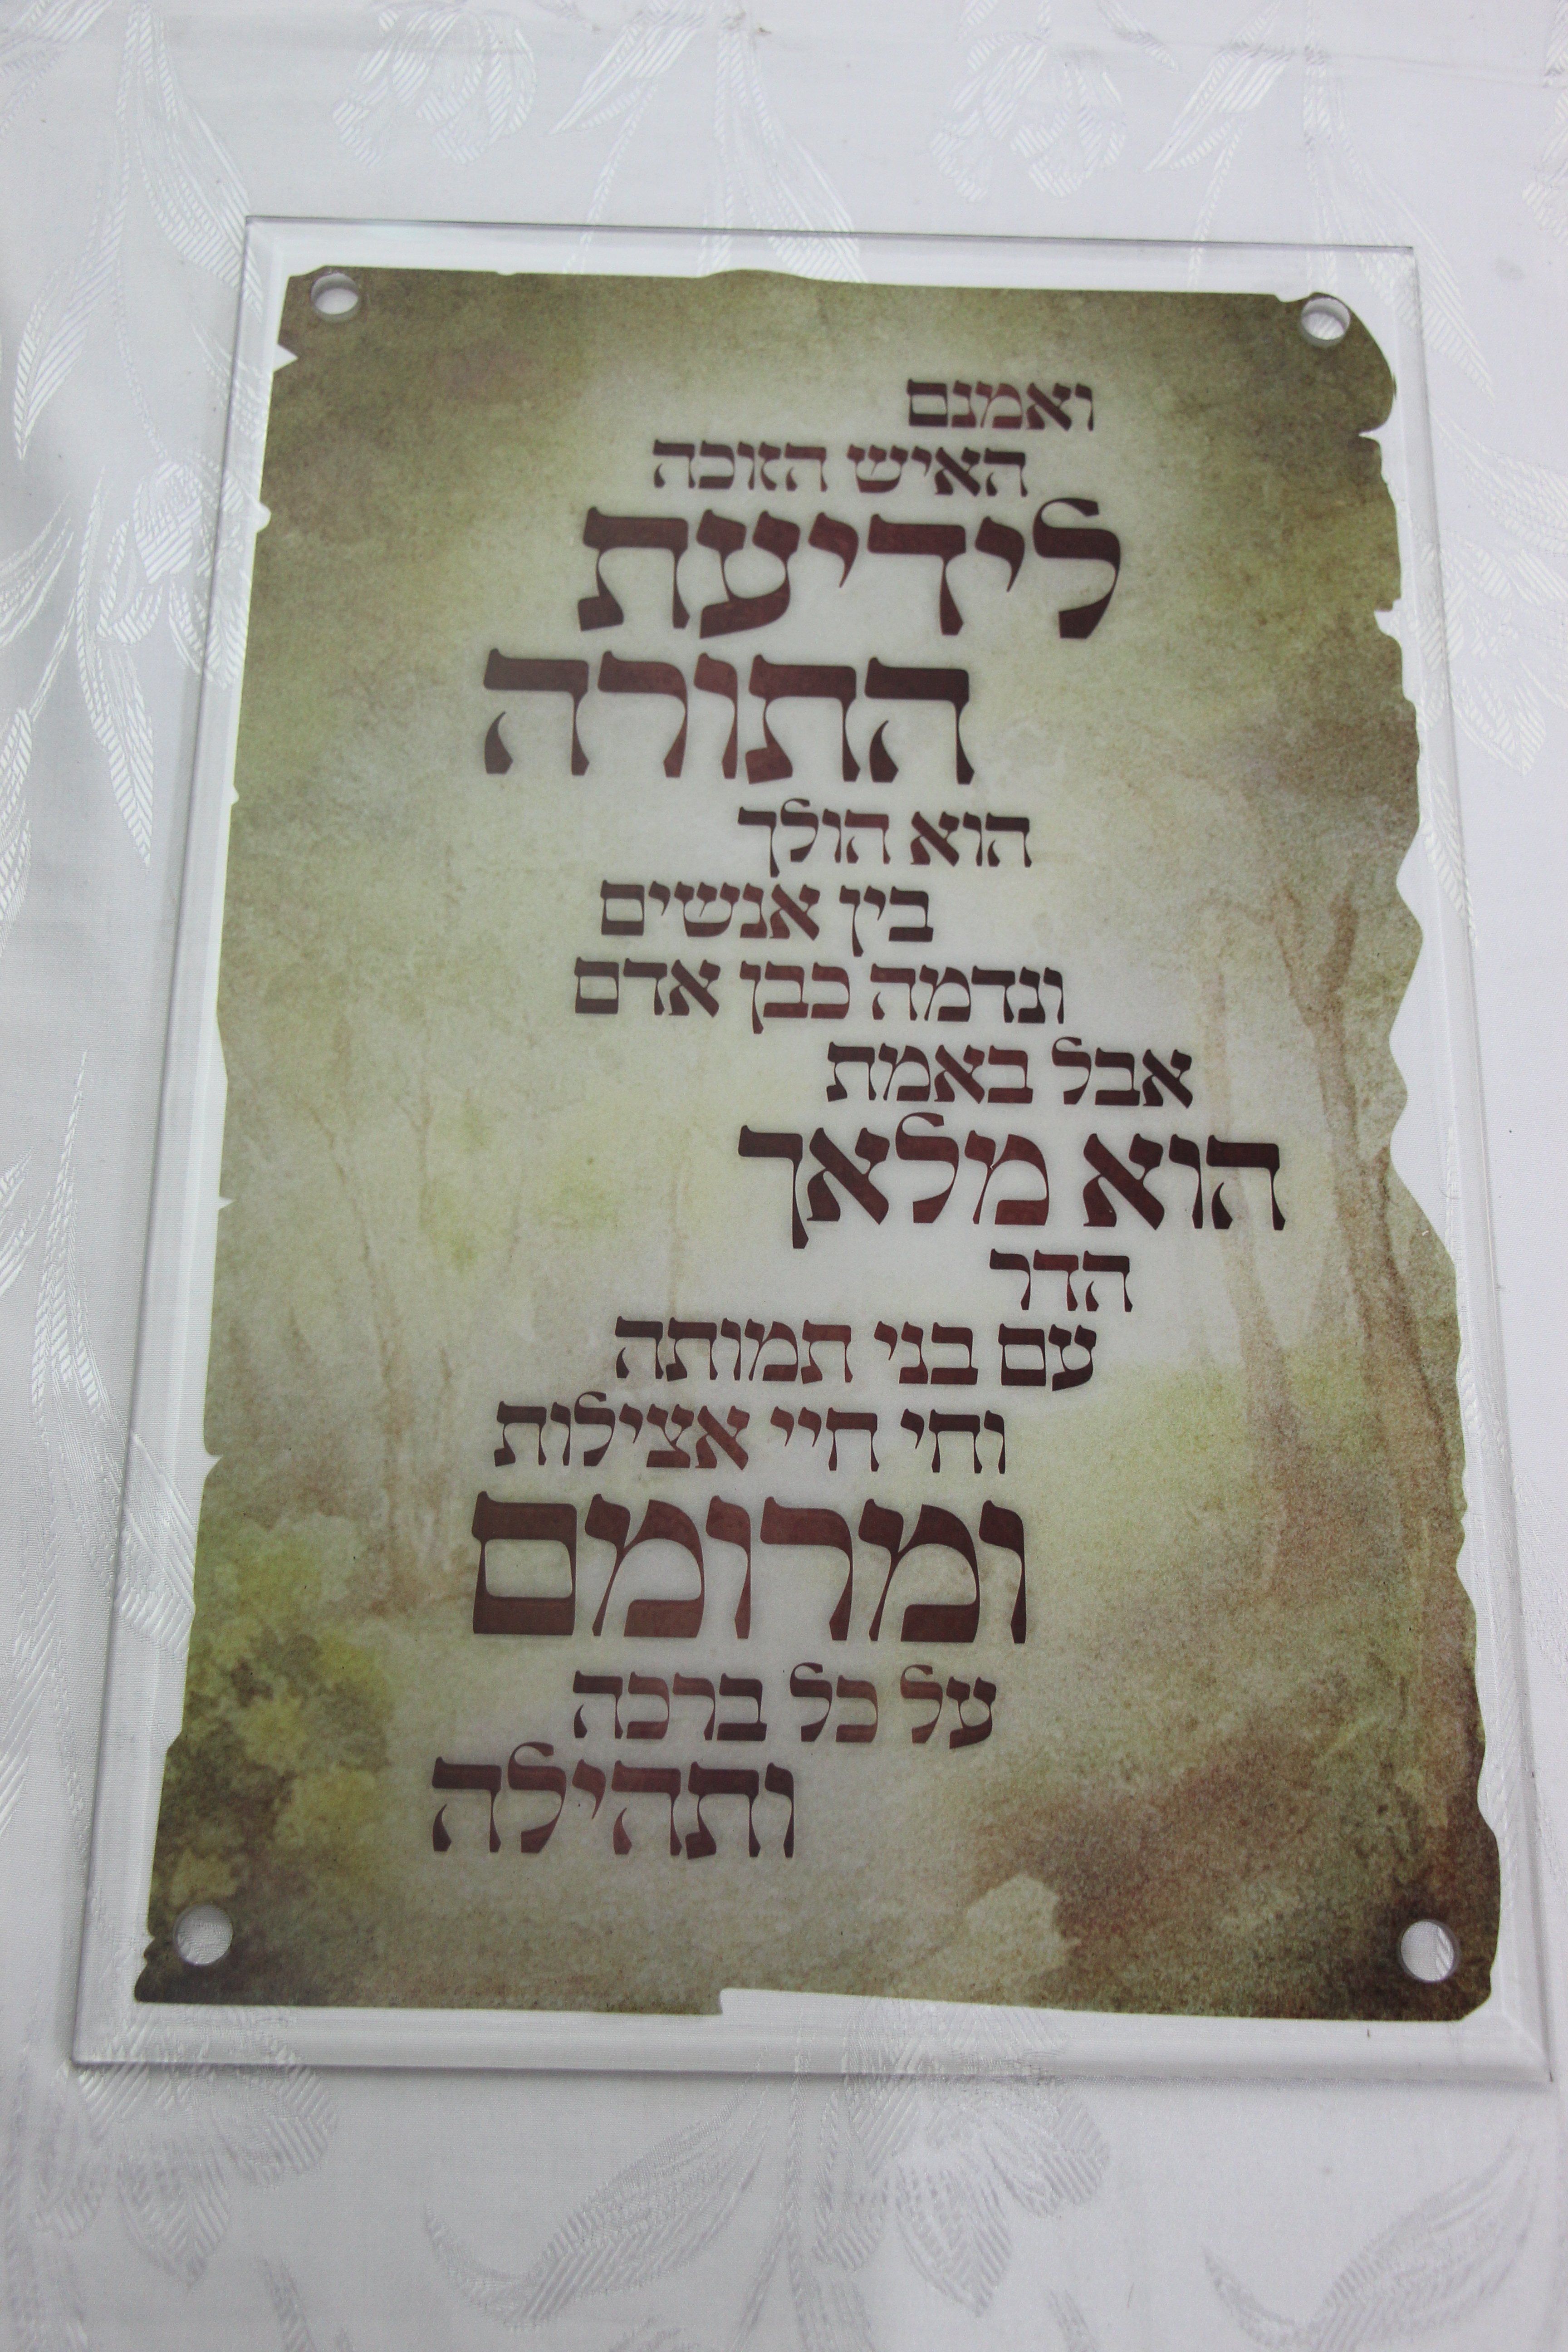 ואמנם
האיש הזוכה
לידיעת
התורה
הוא הולך
בין אנשים
ונדמה כבן אדם
אבל באמת
הוא מלאך
הדר
עם בני תמותה
וחי חיי אצילות
ומרומם
על כל ברכה
ותהילה